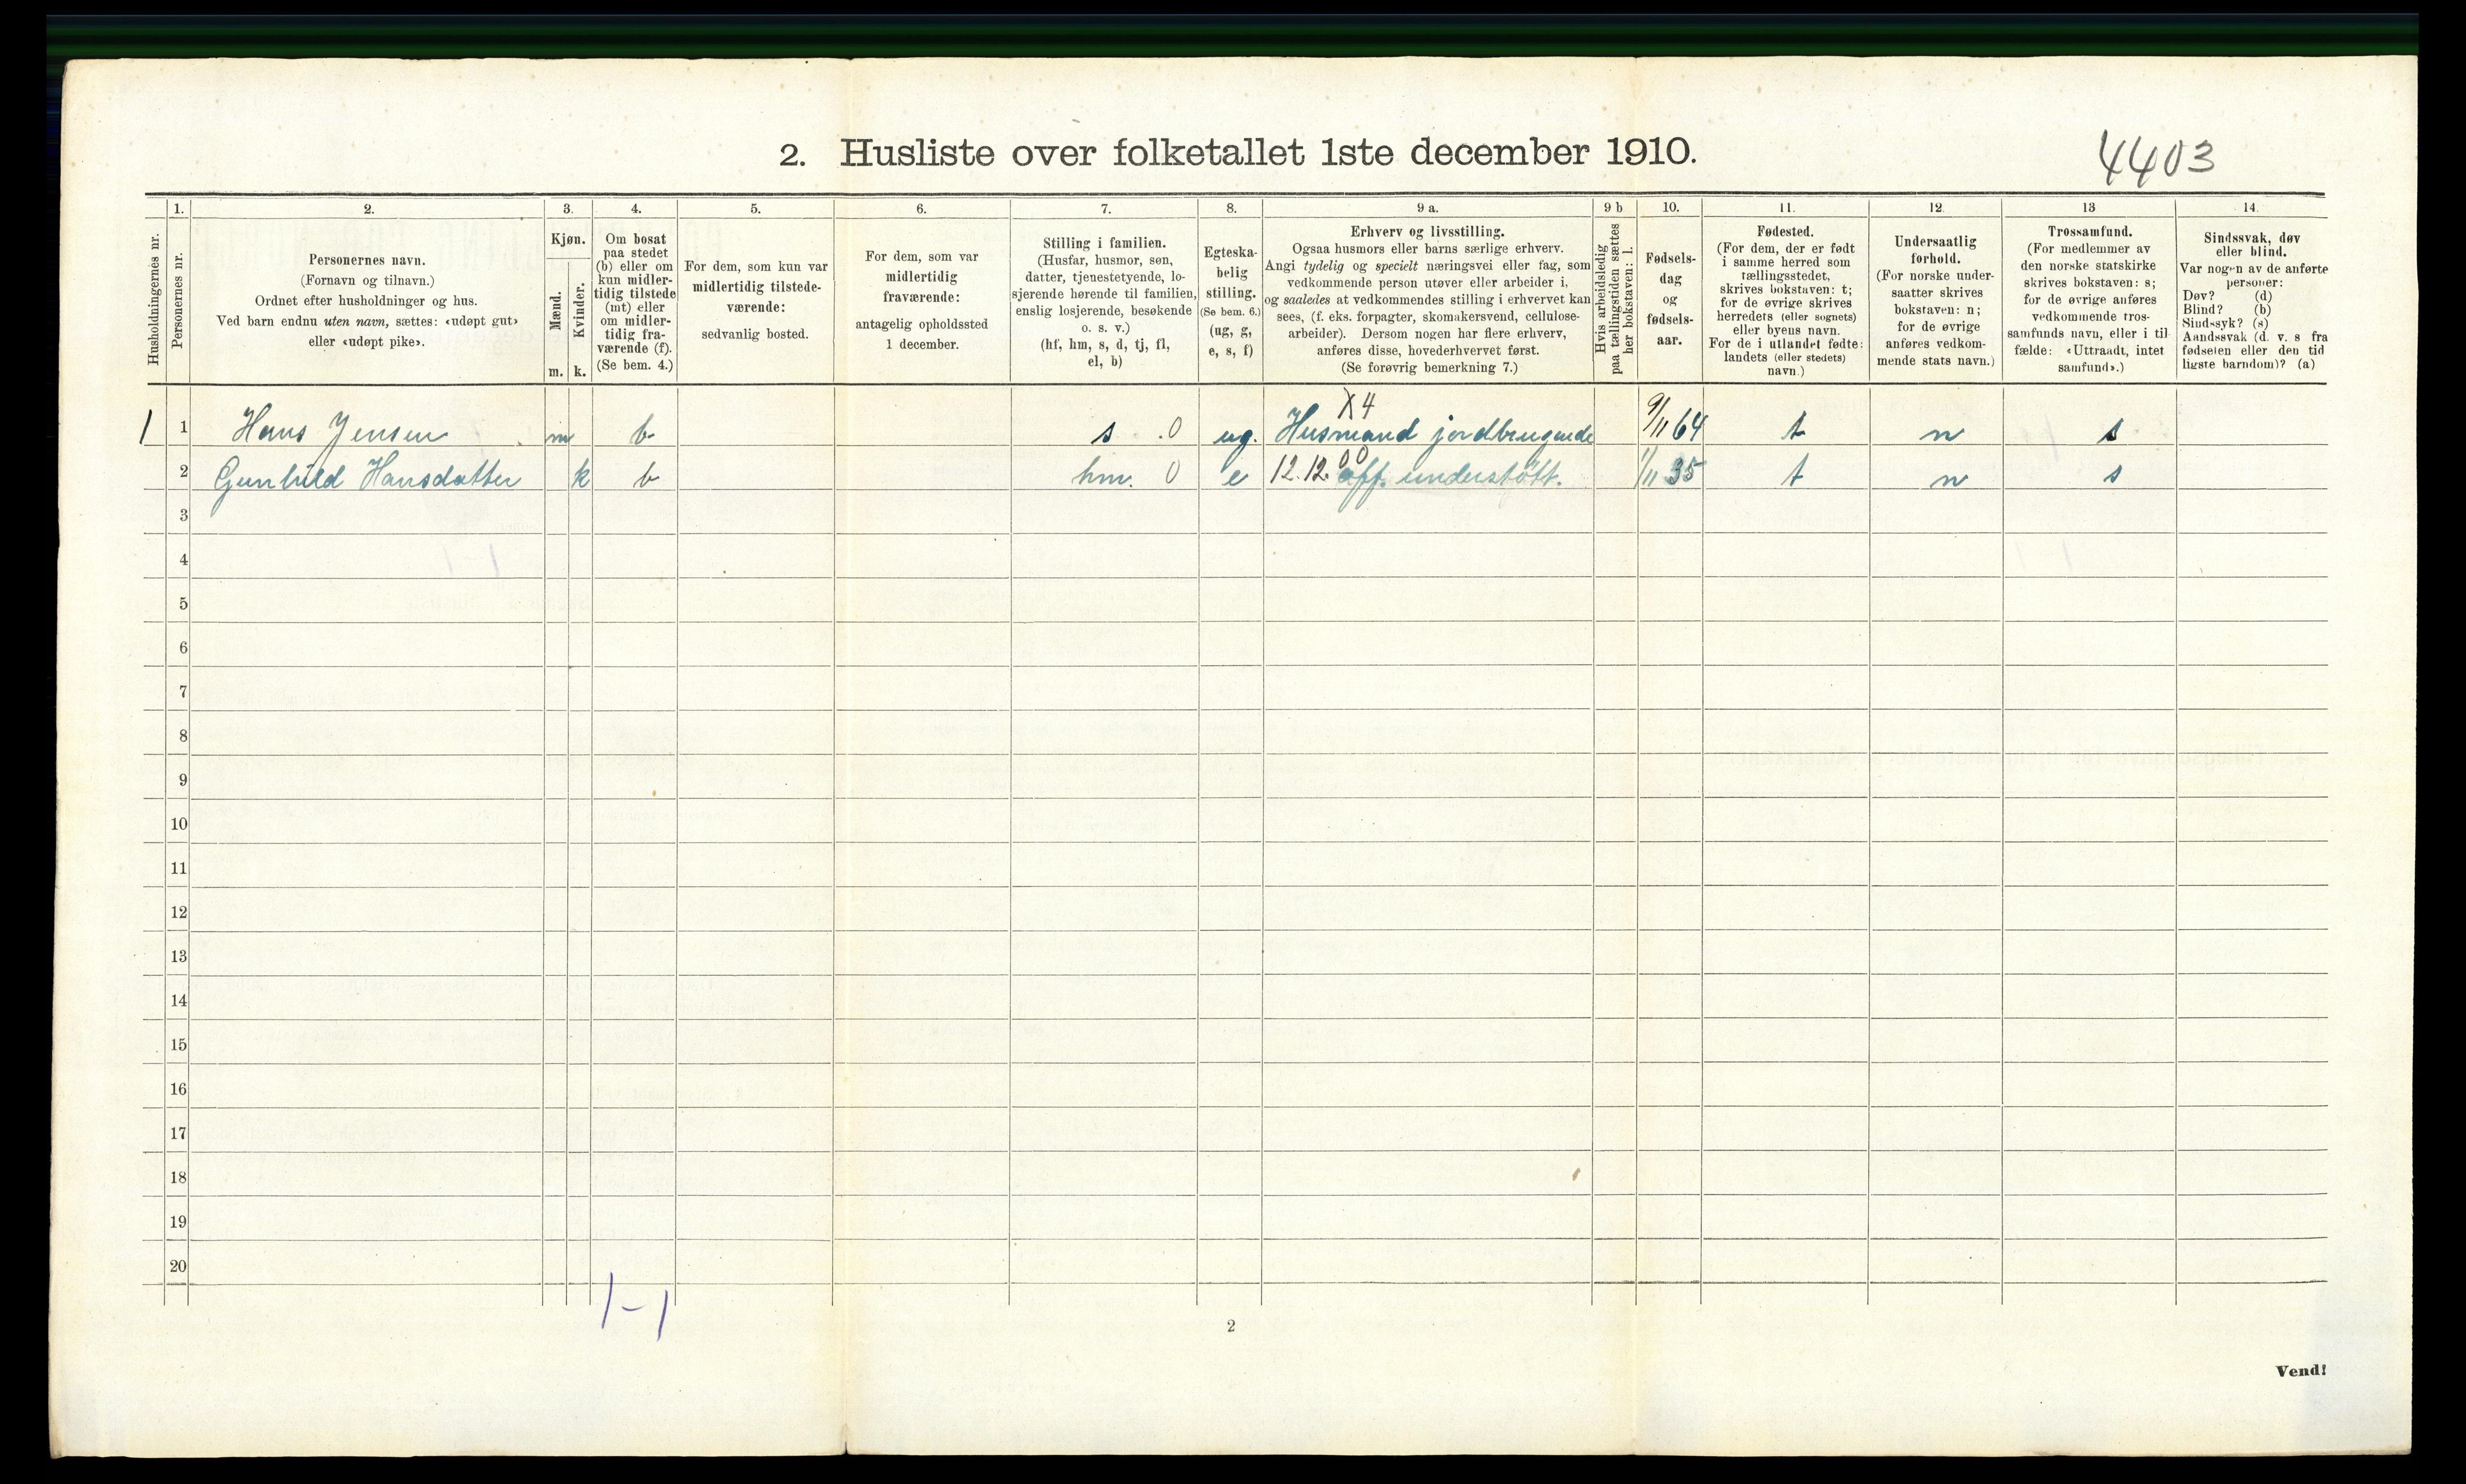 2. Husliste over folketallet 1ste december 1910.
4403
Husholdningernes nr.
1.
Personernes nr.
2.
Personernes navn.
(Fornavn og tilnavn.)
Ordnet efter husholdninger og hus.
Ved barn endnu uten navn, sættes: «udøpt gut»
eller «udøpt pike».
3.
Kjøn.
Mænd.
Kvinder.
m. k.
4.
Om bosat
paa stedet
(b) eller om
kun midler-
tidig tilstede
(mt) eller
om midler-
tidig fra-
værende (f).
(Se bem. 4.)
5.
For dem, som kun var
midlertidig tilstede-
værende:
sedvanlig bosted.
6.
For dem, som var
midlertidig
fraværende:
antagelig opholdssted
1 december.
7.
Stilling i familien.
(Husfar, husmor, søn,
datter, tjenestetyende, lo-
sjerende hørende til familien,
enslig losjerende, besøkende
o. s. v.)
(hf, hm, s, d, tj, fl,
el, b)
8.
Egteska-
belig
stilling.
(Se bem. 6.)
(ug, g,
e, s, f)
9 a.
Erhverv og livsstilling.
Ogsaa husmors eller barns særlige erhverv.
Angi tydelig og specielt næringsvei eller fag, som
vedkommende person utøver eller arbeider i,
og saaledes at vedkommendes stilling i erhvervet kan
sees, (f. eks. forpagter, skomakersvend, cellulose-
arbeider). Dersom nogen har flere erhverv,
anføres disse, hovederhvervet først.
(Se forøvrig bemerkning 7.)
9 b
Hvis arbeidsledig
paa tællingstiden sættes
her bokstaven: l.
10.
Fødsels-
dag
og
fødsels-
aar.
11.
Fødested.
(For dem, der er født
i samme herred som
tællingsstedet,
skrives bokstaven: t;
for de øvrige skrives
herredets (eller sognets)
eller byens navn.
For de i utlandet fødte:
landets (eller stedets)
navn.)
12.
Undersaatlig
forhold.
(For norske under-
saatter skrives
bokstaven: n;
for de øvrige
anføres vedkom-
mende stats navn.)
13
Trossamfund.
(For medlemmer av
den norske statskirke
skrives bokstaven: s;
for de øvrige anføres
vedkommende tros-
samfunds navn, eller i til
fælde: «Uttraadt, intet
samfund».)
14.
Sindssvak, døv
eller blind.
Var nogen av de anførte
personer:
Døv? (d)
Blind? (b)
Sindssyk? (s)
Aandssvak (d. v. s fra
fødselen eller den tid
ligste barndom)? (a)
X4
1 1 Hans Jensen m b s .0 ug. Husmand jordbrugende 9/11 64 t n s
00
2 Gunhild Hansdatter k b hm. 0 e 12.12. off. understøtt. 1/11 35 t n s
3
4
5
6
7
8
9
10
11
12
13
14
15
16
17
18
19
20
1-1
2
Vend!